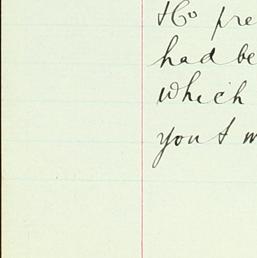 & Co pre
had be
which
you & m